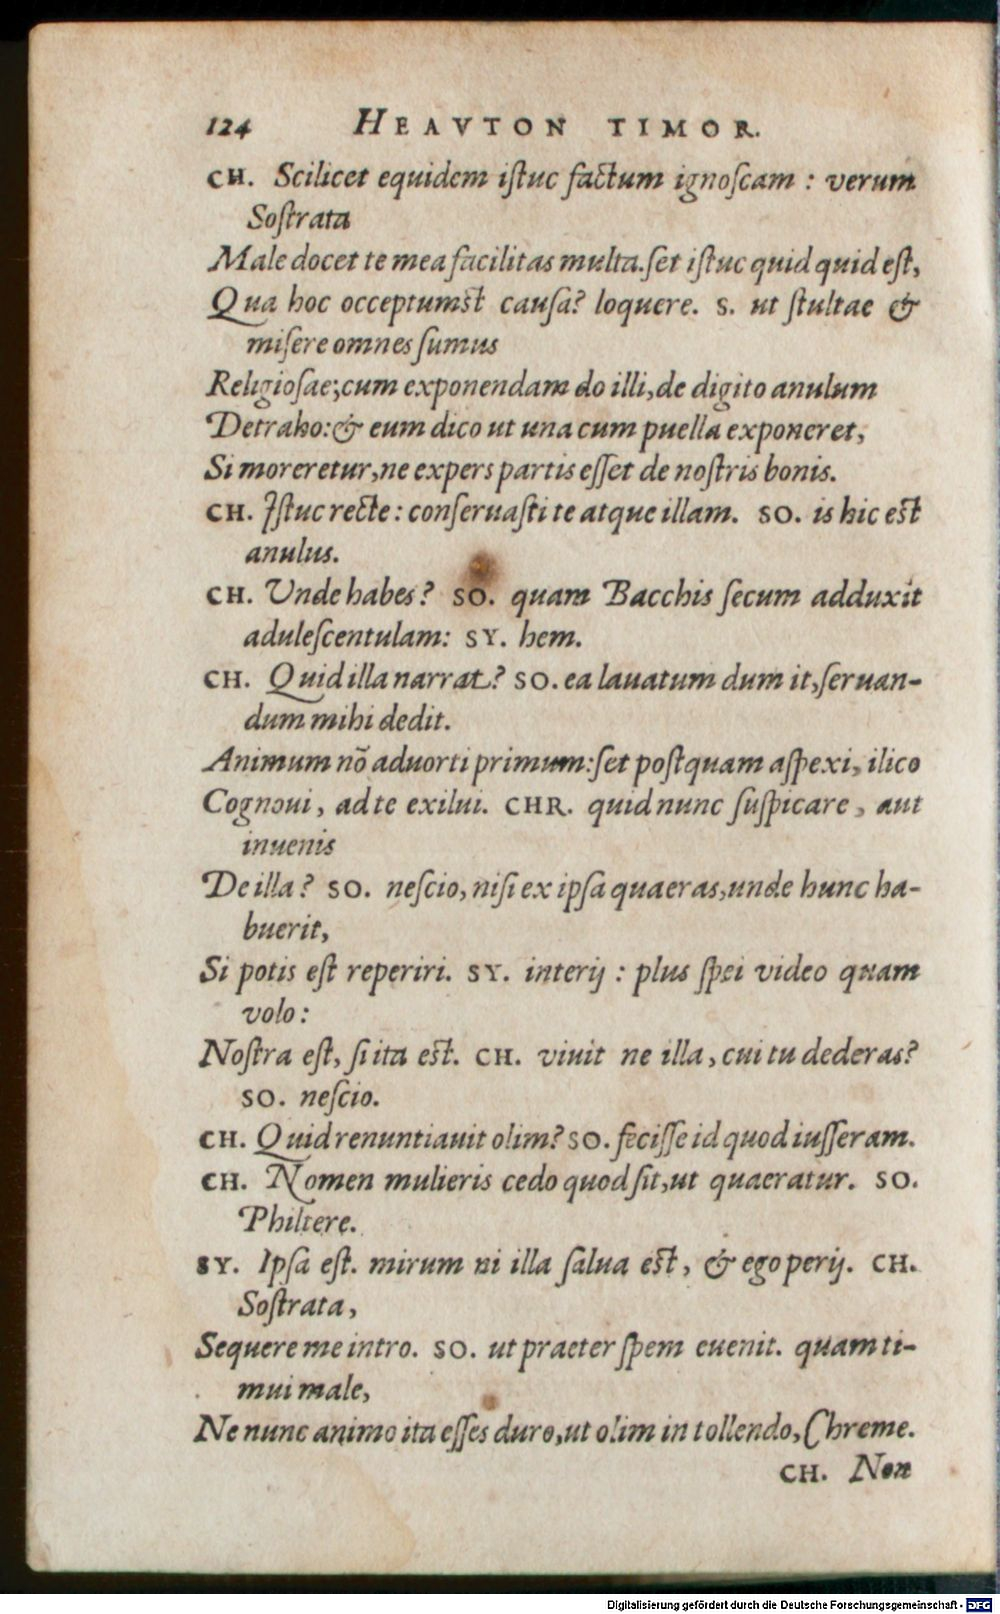 124 HEAVTON TIMOR.
CH. Scilicet equidem iſtuc factum ignoſcam : verum
Soſtrata
Male docet te mea facilitas multa.ſet iſtuc quid quid eſt,
Qua hoc occeptumst causa? loquere. S. ut ſtultae &
miſere omnes ſumus
Religioſae;cum exponendam do illi,de digito anulum
Detraho:& eum dico ut una cum puella exponeret,
Si moreretur,ne expers partis eſſet de noſtris bonis.
CH. Iſtuc recte : conſeruaſti te atque illam. SO. is hic eſt
anulus.
CH. Unde habes? SO. quam Bacchis ſecum adduxit
aduleſcentulam: SY. hem.
CH. Quid illa narrat? SO. ea lauatum dum it,ſeruan-
dum mihi dedit.
Animum nõ aduorti primum:ſet poſtquam aſpexi, ilico
Cognoui, ad te exilui. CHR. quid nunc ſuſpicare, aut
inuenis
De illa? SO. neſcio, niſi ex ipſa quaeras,unde hunc ha-
buerit,
Si potis eſt reperiri. SY. interij : plus ſpei video quam
volo:
Noſtra eſt, ſi ita eſt. CH. viuit ne illa, cui tu dederas?
SO. neſcio.
CH. Quid renuntiauit olim? SO. feciſſe id quod iuſſeram.
CH. Nomen mulieris cedo quod ſit,ut quaeratur. SO.
Philtere.
SY. Ipſa eſt. mirum ni illa ſalua eſt, & ego perij. CH.
Soſtrata,
Sequere me intro. SO. ut praeter ſpem euenit. quam ti-
mui male,
Ne nunc animo ita eſſes duro,ut olim in tollendo,Chreme.
CH. Non
Digitalisierung gefördert durch die Deutsche Forschungsgemeinschaft - DFG